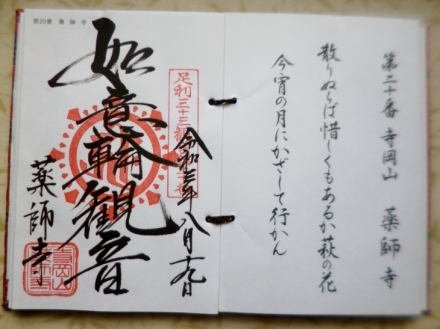 第二十番 寺岡山 薬師寺
散りぬらば惜しくもあるか萩の花
今宵の月にかざして行かん
第20番 薬師寺
足利三十三観音
令和三年八月十九日
如意輪観音
薬師寺